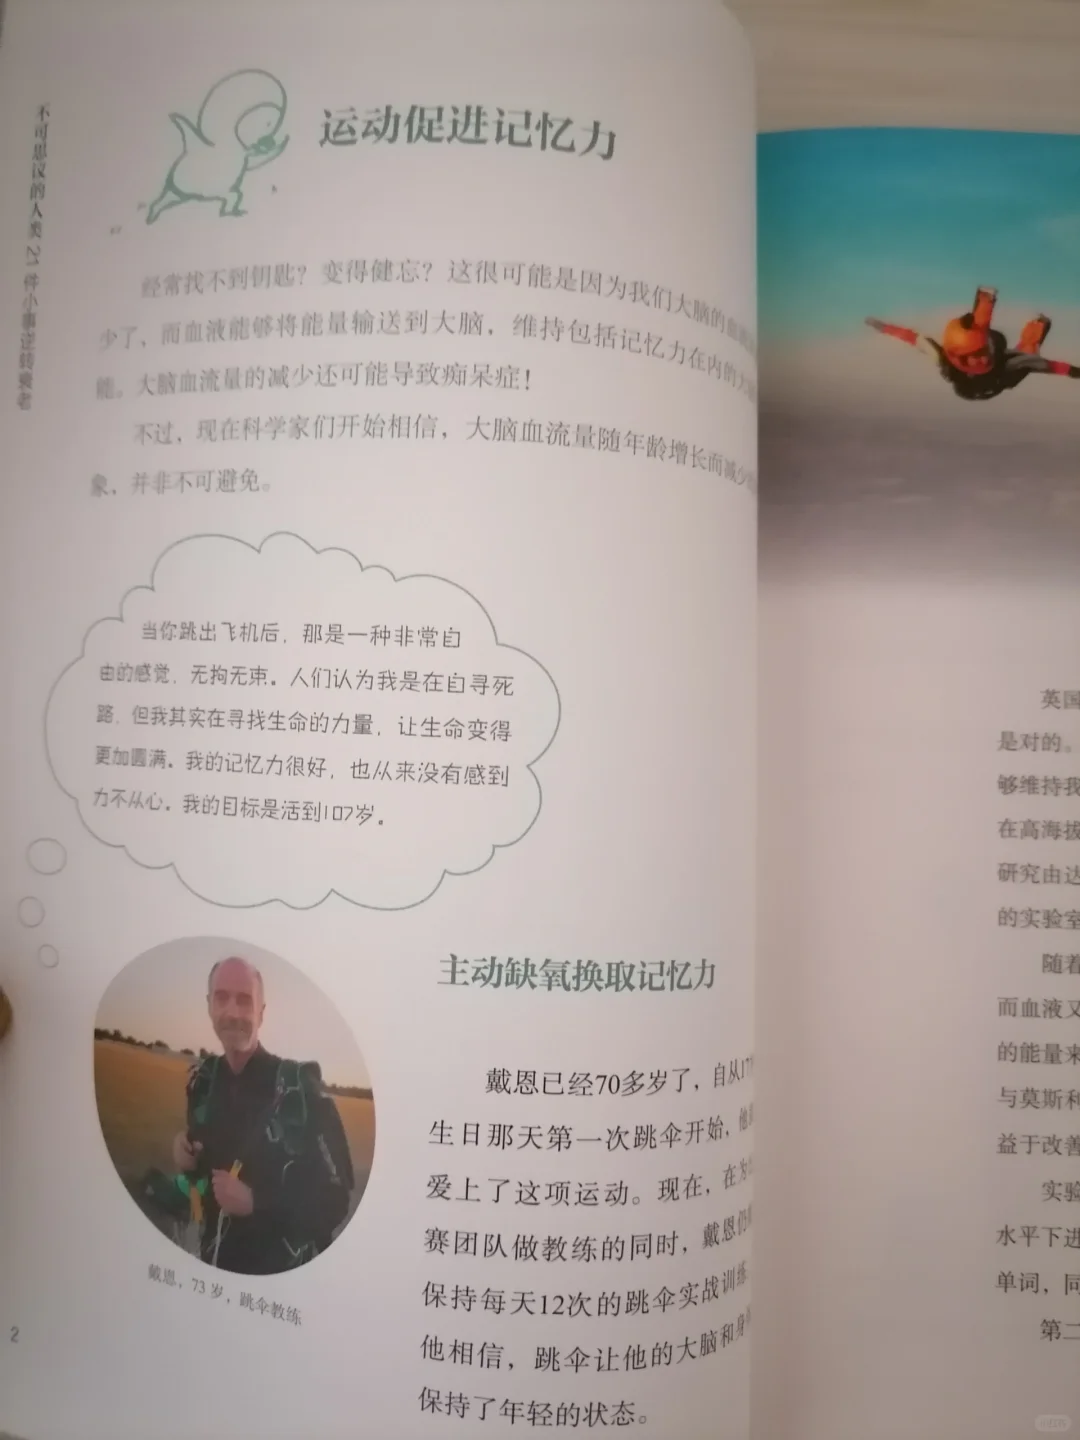 不可思议的人类 21件小事逆转衰老
运动促进记忆力
经常找不到钥匙？变得健忘？这很可能是因为我们大脑的血
少了，而血液能够将能量输送到大脑，维持包括记忆力在内的大
能。大脑血流量的减少还可能导致痴呆症！
不过，现在科学家们开始相信，大脑血流量随年龄增长而减少
象，并非不可避免。
当你跳出飞机后，那是一种非常自
由的感觉，无拘无束。人们认为我是在自寻死
路，但我其实在寻找生命的力量，让生命变得
更加圆满。我的记忆力很好，也从来没有感到
力不从心。我的目标是活到107岁。
主动缺氧换取记忆力
戴恩已经70多岁了，自从17
生日那天第一次跳伞开始，他
爱上了这项运动。现在，在为
赛团队做教练的同时，戴恩仍
保持每天12次的跳伞实战训练
他相信，跳伞让他的大脑和身
保持了年轻的状态。
戴恩，73岁，跳伞教练
2
英国
是对的。
够维持我
在高海拔
研究由达
的实验室
随着
而血液又
的能量来
与莫斯利
益于改善
实验
水平下进
单词，同
第二